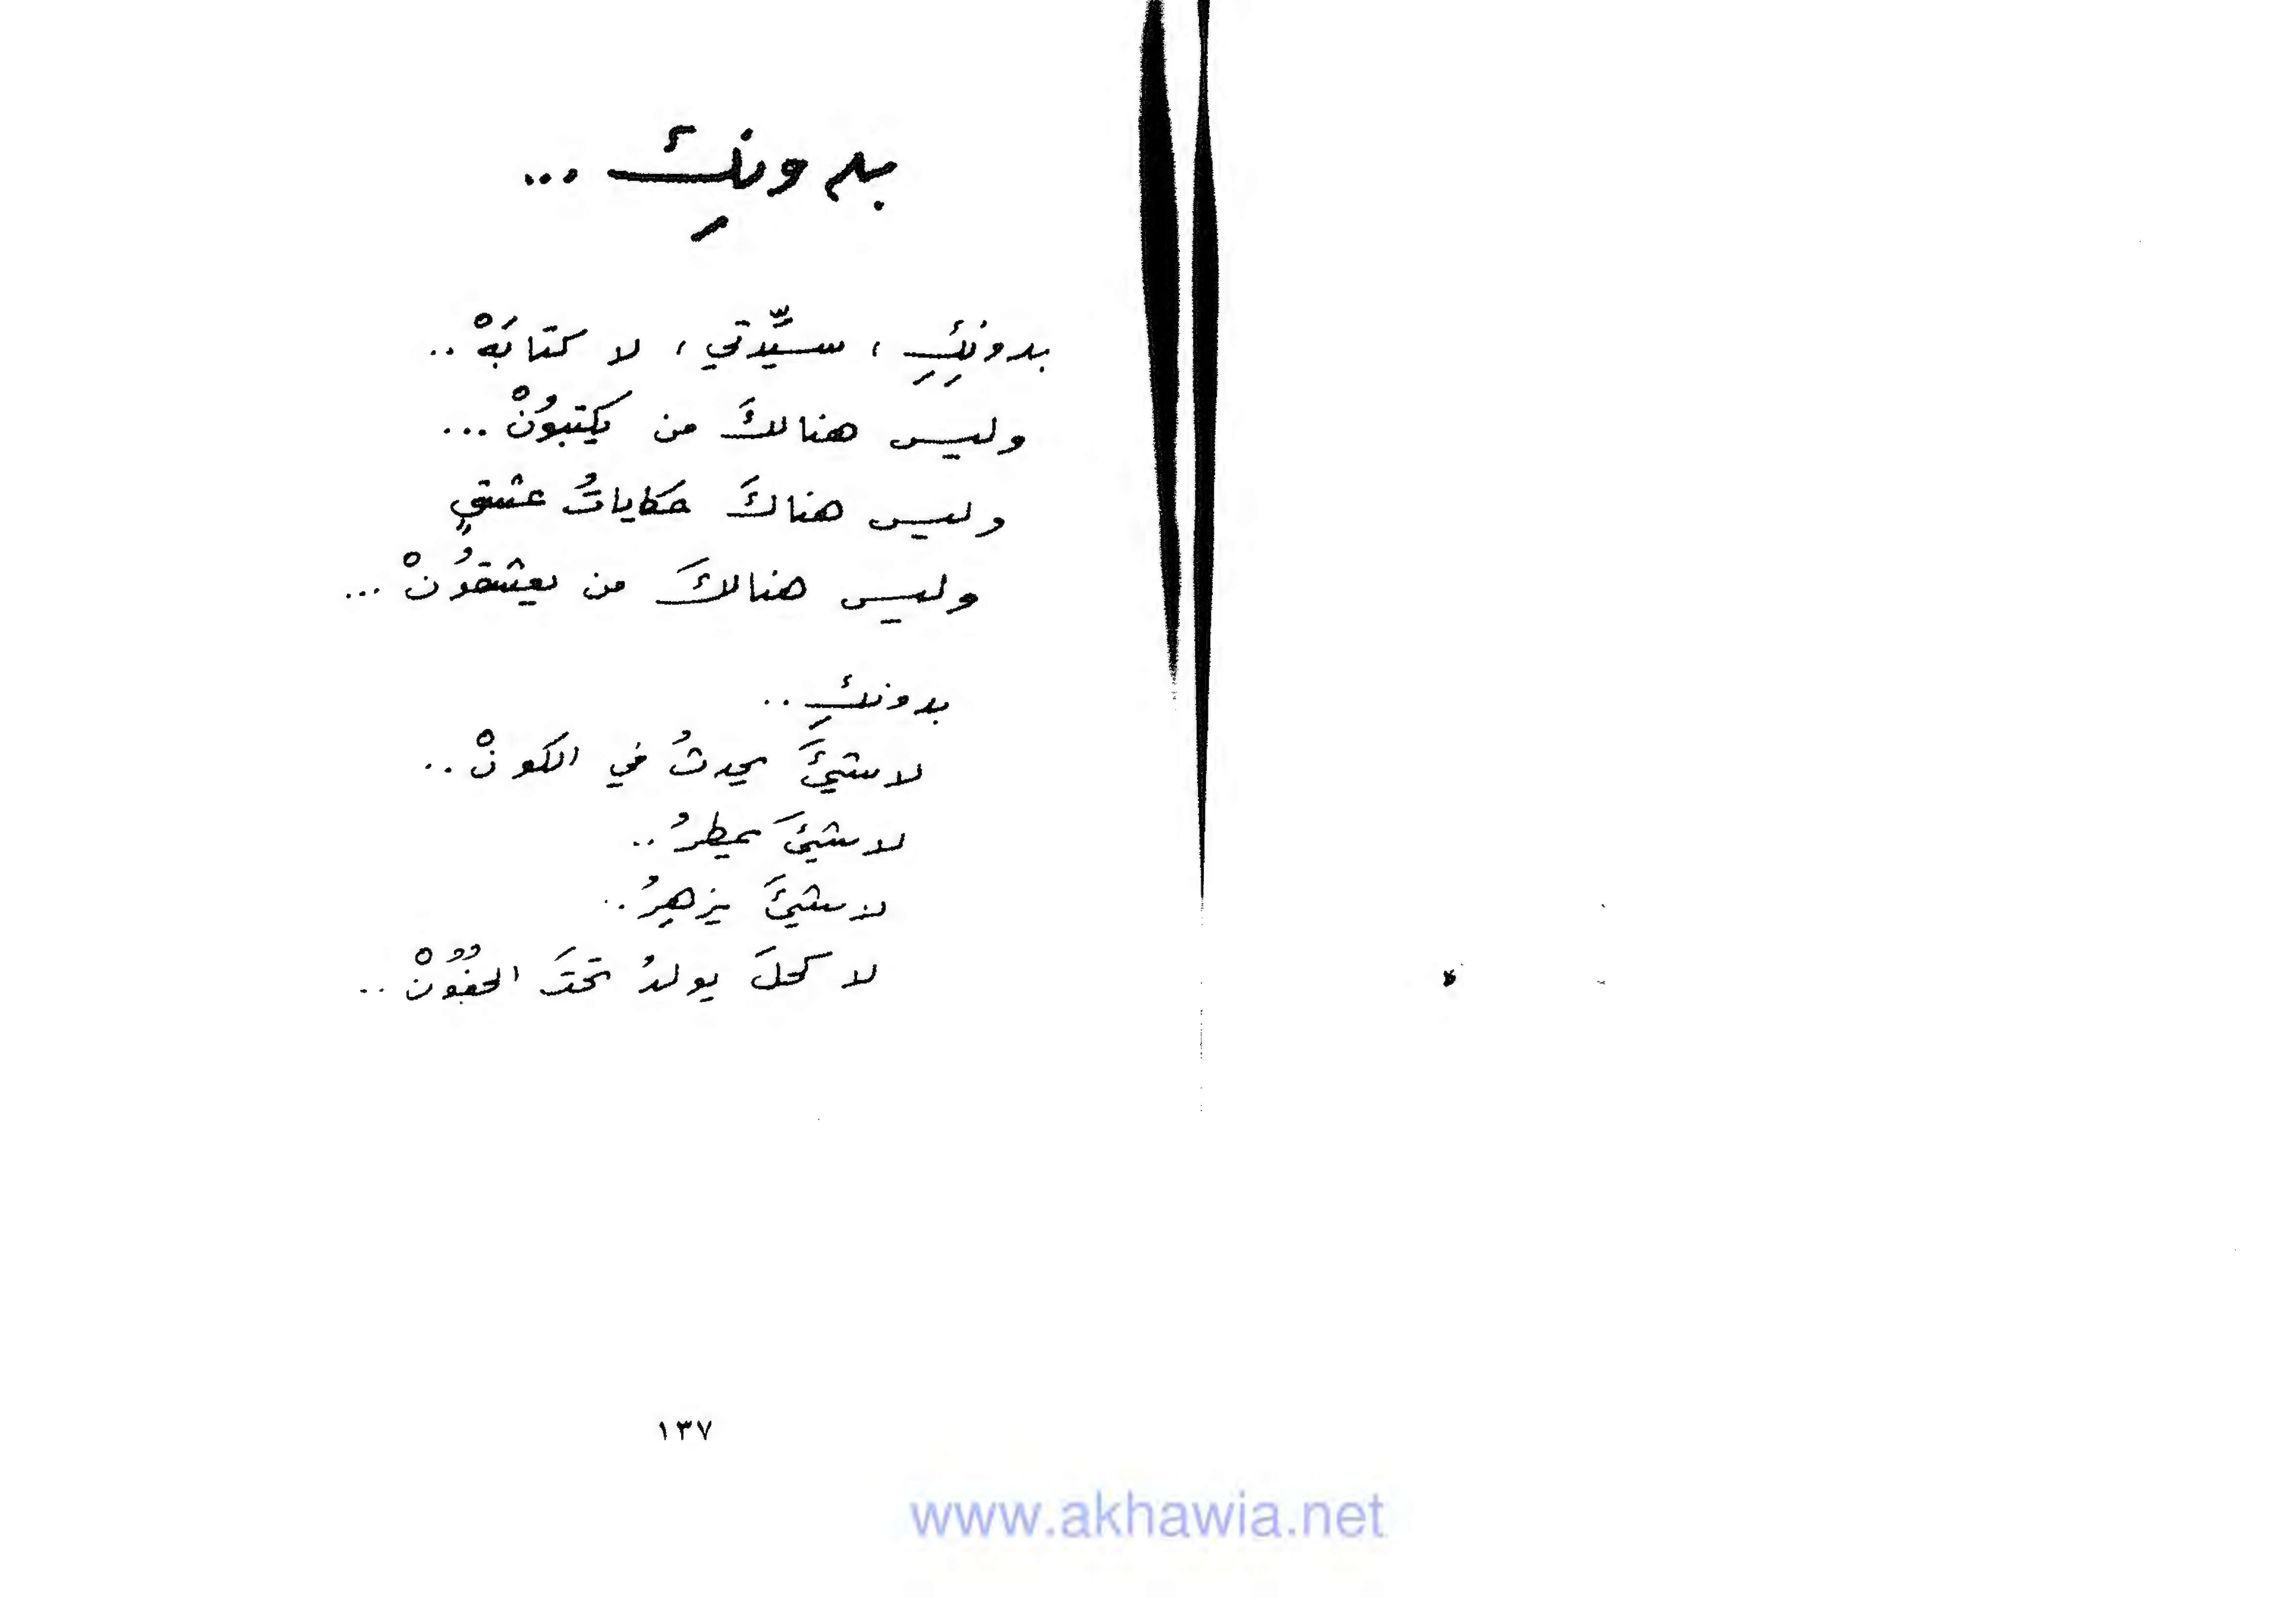 بدونكِ ...
بدونِكِ ، سيِّدتي ، لا كتابَهْ ..
وليس هنالكَ من يكتبوُنْ ...
وليس هناكَ حكاياتُ عشقٍ
وليس هنالكَ من يعشقوُنْ ...
بدونكِ ..
لا شيئَ يحدثُ في الكونْ ..
لا شيئَ يمطرُ ..
لا شيئَ يزهِرُ ..
لا كحلَ يولدُ تحتَ الجفُوُنْ ..
١٣٧
www.akhawia.net